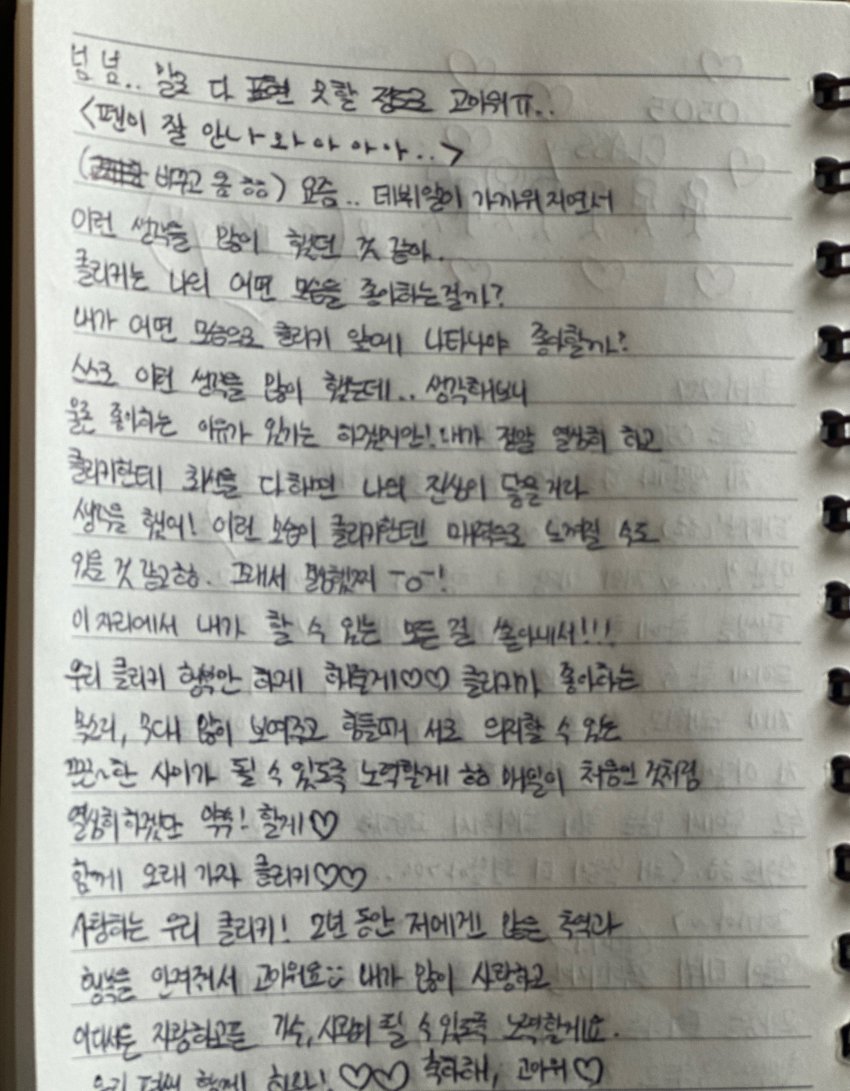 넘 넘.. 말로 다 표현 못할 정도로 고마워ㅠ..
<펜이 잘 안나와아아아..>
( 바꾸고 옴 ㅎㅎ) 요즘.. 데뷔일이 가까워지면서
이런 생각을 많이 했던 것 같아.
클리키는 나의 어떤 모습을 좋아하는걸까?
내가 어떤 모습으로 클리키 앞에 나타나야 좋아할까?
스스로 이런 생각을 많이 했는데.. 생각해보니
물론 좋아하는 이유가 있기는 하겠지만! 내가 정말 열심히 하고
클리키한테 최선을 다하면 나의 진심이 닿을거라
생각을 했어! 이런 모습이 클리키한텐 매력으로 느껴질 수도
있을 것 같고ㅎㅎ. 그래서 말했찌 -o-!
이 자리에서 내가 할 수 있는 모든 걸 쏟아내서!!!
우리 클리키 행복만 하게 해줄게♡♡ 클리키가 좋아하는
목소리, 무대 많이 보여주고 힘들때 서로 의지할 수 있는
끈~한 사이가 될 수 있도록 노력할게 ㅎㅎ 매일이 처음인 것처럼
열심히하겠단 약쏙! 할게♡
함께 오래 가자 클리키♡♡
사랑하는 우리 클리키! 2년 동안 저에게 많은 추억과
행복을 안겨줘서 고마워요 내가 많이 사랑하고
어디서든 자랑하고픈 가수, 사람이 될 수 있도록 노력할게요.
우리 함께 하자! ♡♡ 축하해, 고마워♡